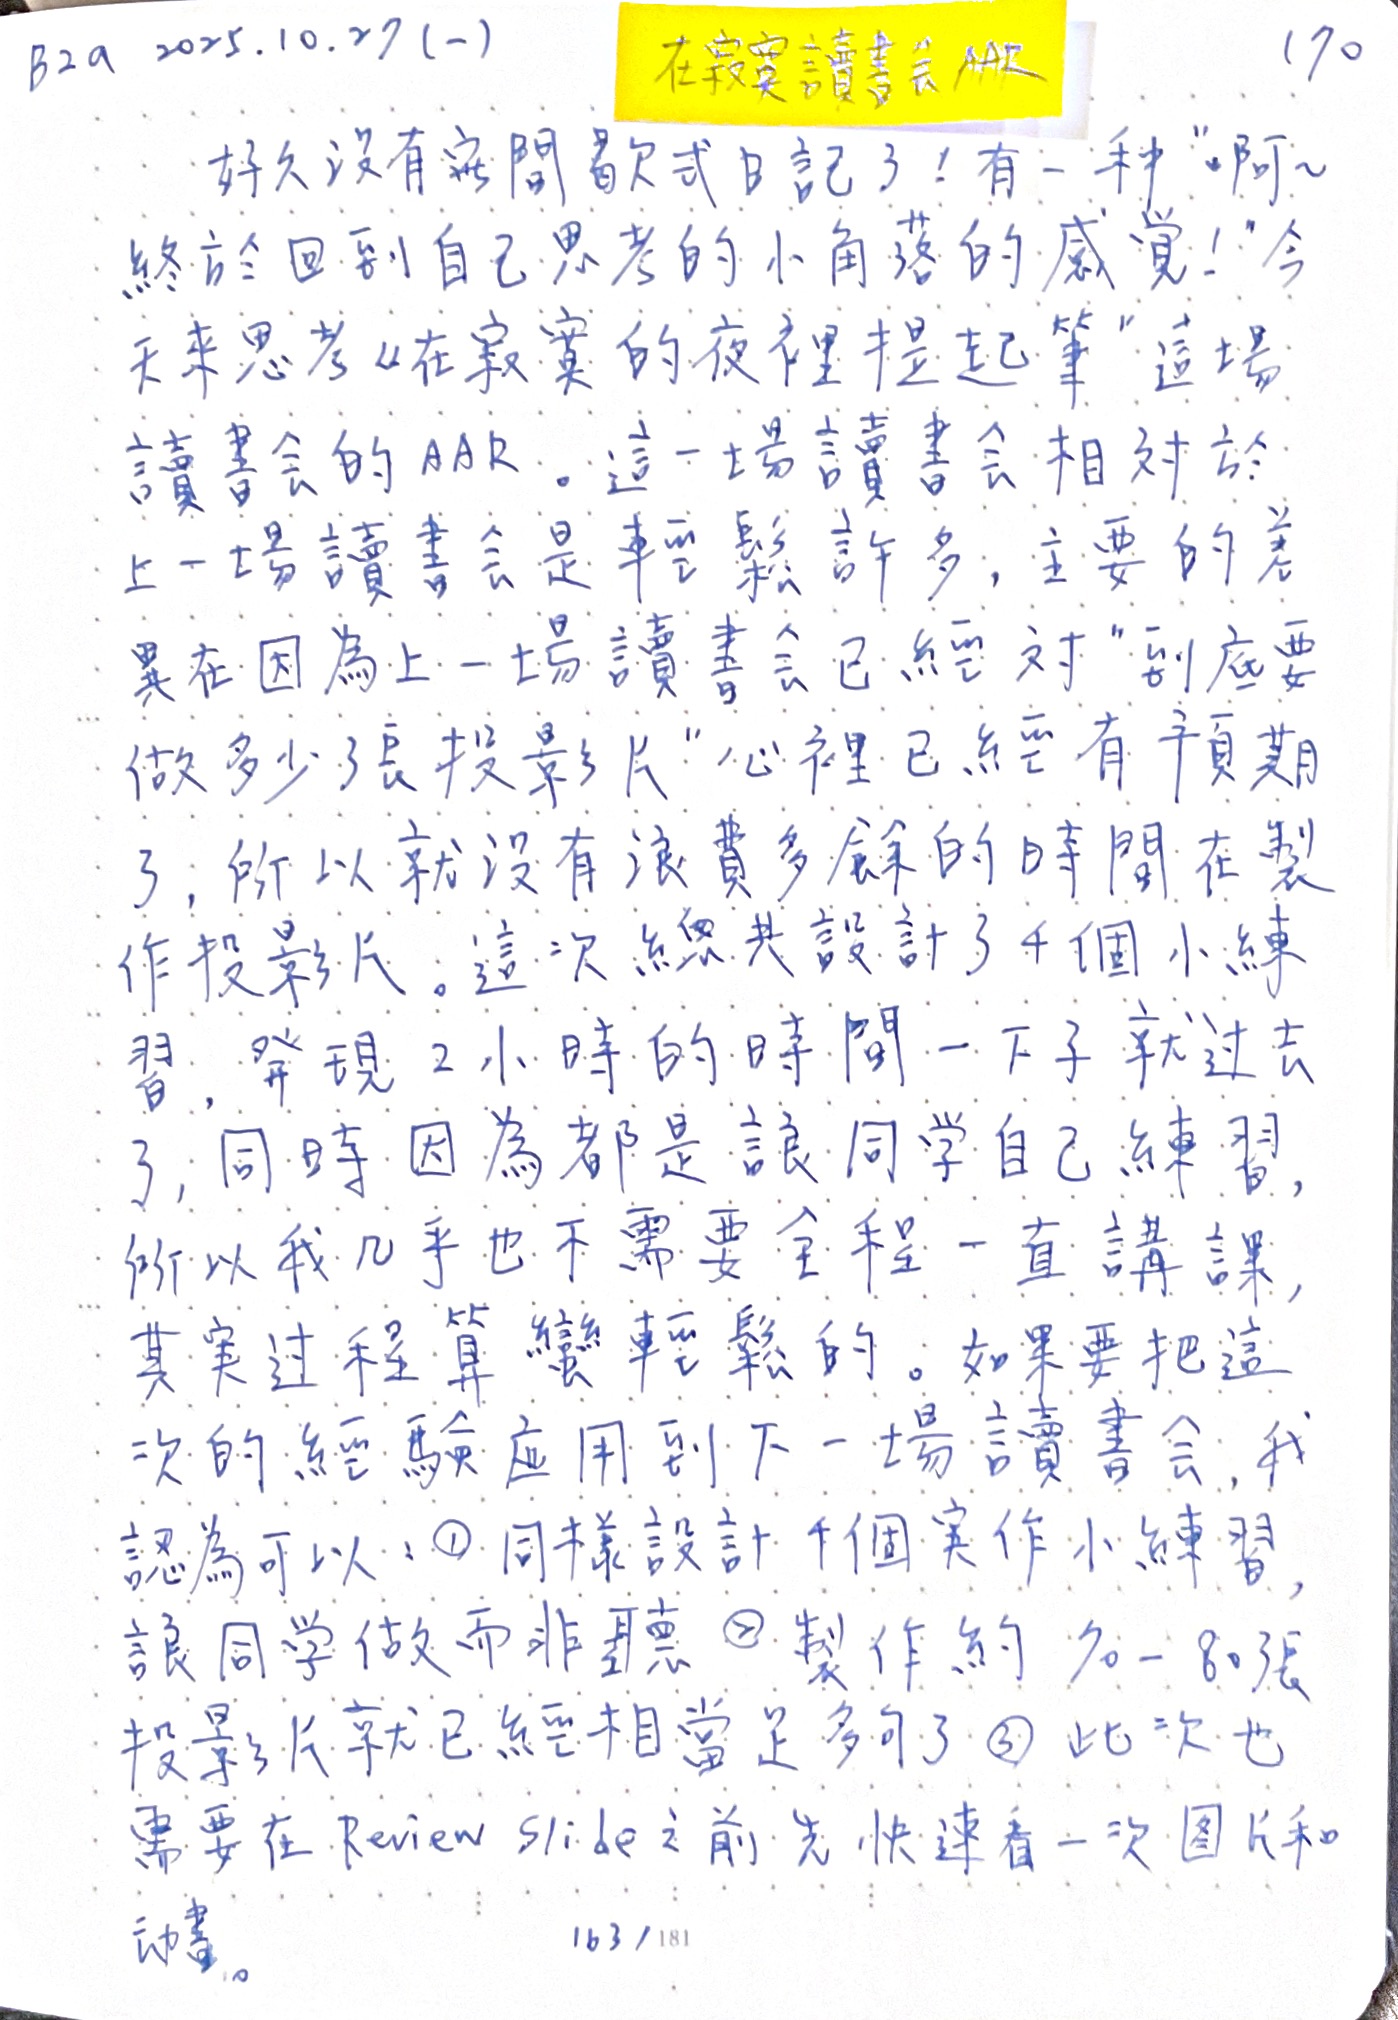 B2a 2025.10.27(一)
在寂寞讀書会 AAR
170
好久沒有無間歇式日記了！有一种"啊~
終於回到自己思考的小角落的感覚！"今
天來思考"在寂寞的夜裡提起筆"這場
讀書会的AAR。這一場讀書会相対於
上一場讀書会是輕鬆許多，主要的差
異在因為上一場讀書会已經対"到底要
做多少張投影片"心裡已經有預期
了，所以就沒有浪費多餘的時間在製
作投影片。這次總共設計了4個小練
習，発現2小時的時間一下子就过去
了，同時因為都是讓同学自己練習，
所以我几乎也不需要全程一直講課，
其実过程算蠻輕鬆的。如果要把這
次的經驗应用到下一場讀書会，我
認為可以：①同樣設計4個実作小練習，
讓同学做而非聽②製作約70-80張
投影片就已經相當足夠了③此次也
需要在Review Slide之前先快速看一次图片和
动畫。
163/181